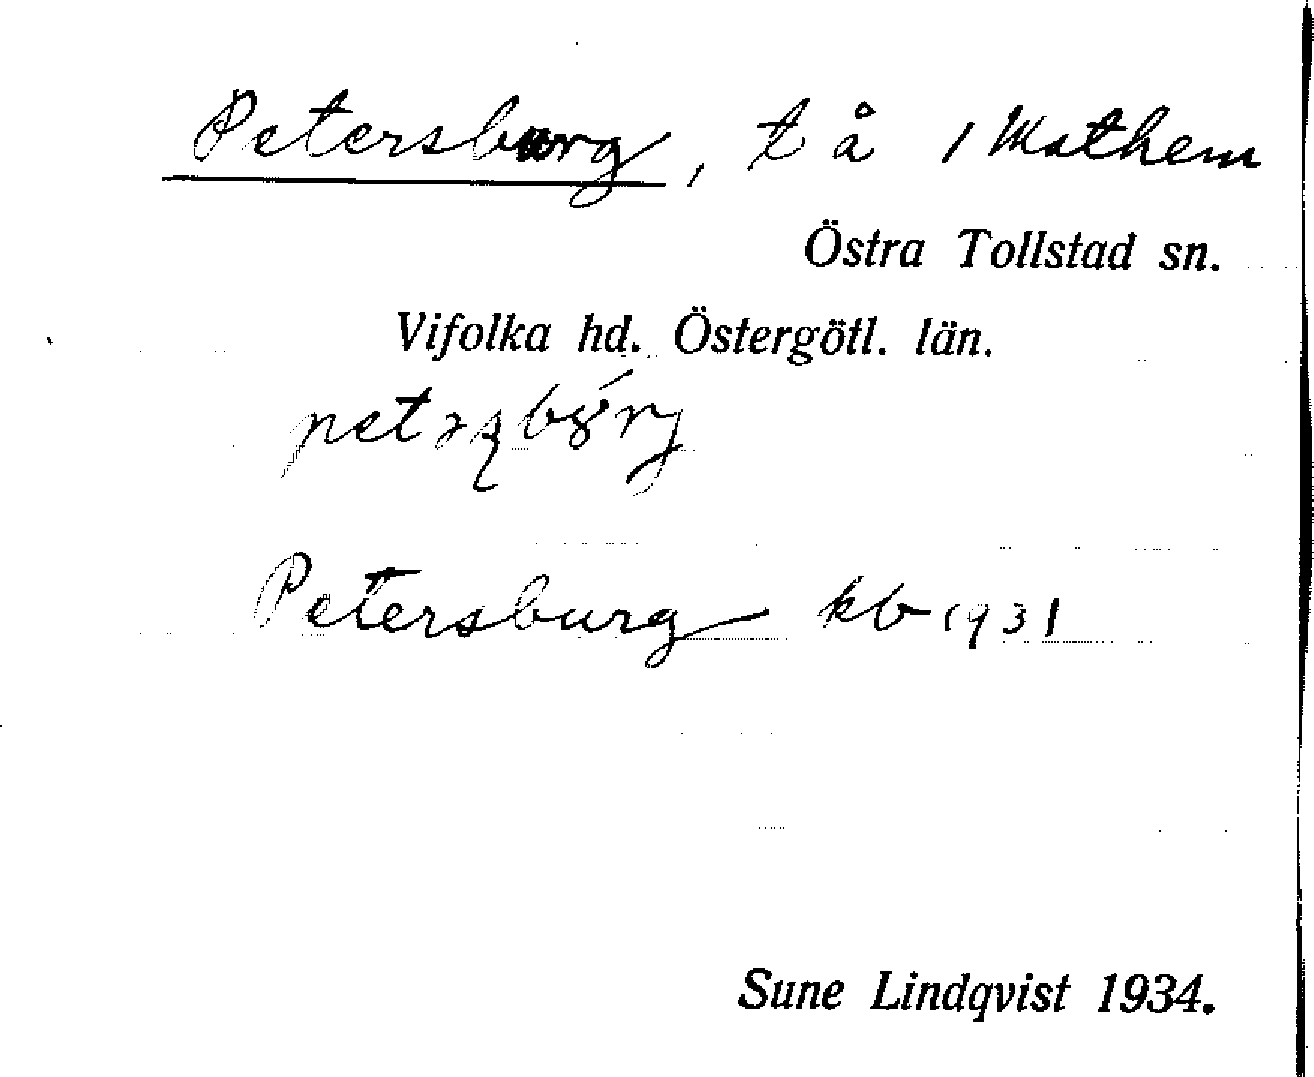 Petersburg, t å 1 Mathem
Östra Tollstad sn.
Vifolka hd. Östergötl. län.
Petersburg kb 1931
Sune Lindqvist 1934.